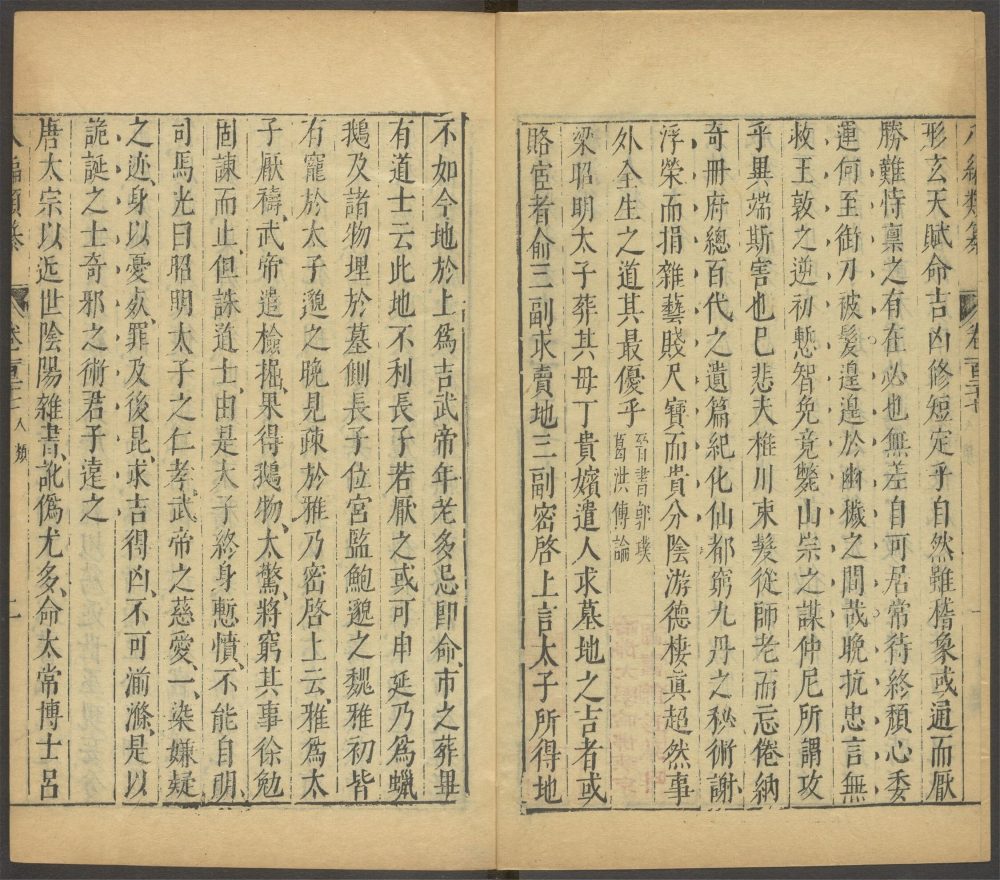 八編類纂
卷一百三十七
形玄天賦命吉凶修短定乎自然雖稽象或通而厭
勝難恃稟之有在必也無差自可居常待終頹心委
運何至銜刀被髮遑遑於幽穢之間哉晚抗忠言無
救王敦之逆初慙智免竟斃山宗之謀仲尼所謂攻
乎異端斯害也已悲夫稚川束髮從師老而忘倦紬
奇冊府總百代之遺篇紀化仙都窮九丹之秘術謝
浮榮而捐雜藝賤尺寶而貴分陰游德棲真超然事
外全生之道其最優乎
晉書郭璞
葛洪傳論
梁昭明太子葬其母丁貴嬪遣人求墓地之吉者或
賂宦者俞三副求賣地三副密啓上言太子所得地
不如今地於上爲吉武帝年老多忌卽命市之葬畢
有道士云此地不利長子若厭之或可申延乃爲蠟
鵝及諸物埋於墓側長子位宮監鮑邈之魏雅初皆
有寵於太子邈之晚見疎於雅乃密啓上云雅爲太
子厭禱武帝遣檢掘果得鵝物太驚將窮其事徐勉
固諫而止但誅道士由是太子終身慙憤不能自明
司馬光曰昭明太子之仁孝武帝之慈愛一染嫌疑
之迹身以憂死罪及後昆求吉得凶不可湔滌是以
詭誕之士奇邪之術君子遠之
唐太宗以近世陰陽雜書訛僞尤多命太常博士呂
八編類纂
人類
二